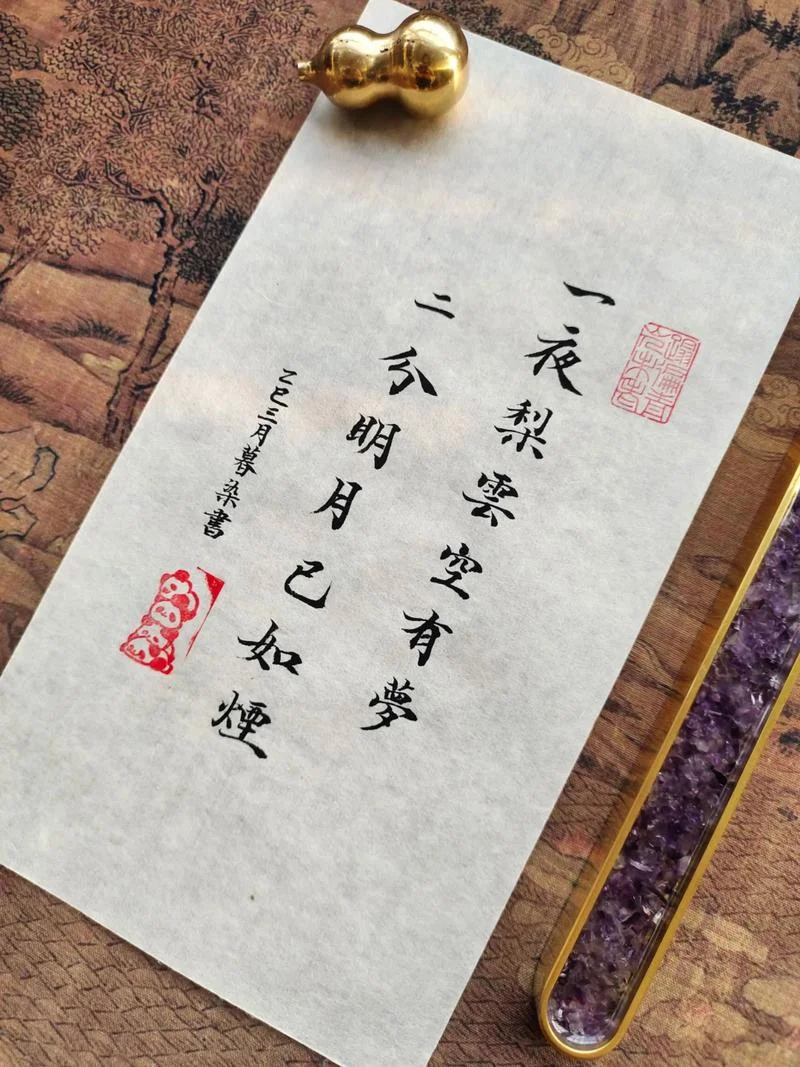 一夜梨雲空有夢
二分明月已如煙
乙巳三月暮染書